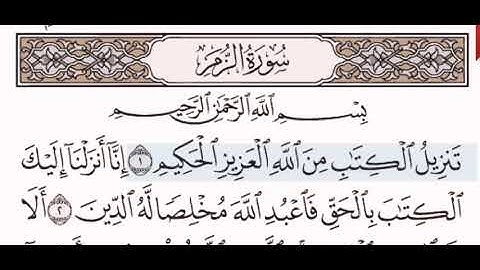 سُورَةُ الزُّمَر
بِسْمِ ٱللَّهِ ٱلرَّحْمَٰنِ ٱلرَّحِيمِ
تَنزِيلُ ٱلْكِتَٰبِ مِنَ ٱللَّهِ ٱلْعَزِيزِ ٱلْحَكِيمِ ١ إِنَّآ أَنزَلْنَآ إِلَيْكَ
ٱلْكِتَٰبَ بِٱلْحَقِّ فَٱعْبُدِ ٱللَّهَ مُخْلِصًا لَّهُ ٱلدِّينَ ٢ أَلَا